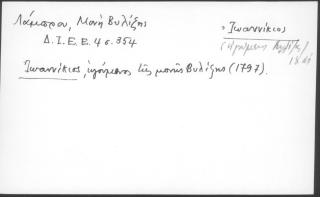 Λάμπρου, Μονή Βυλίζης
Δ.Ι.Ε.Ε. 4 σ. 354
Ἰωαννίκιος
(ἡγούμενος Βυλίζης)
18 αἰ
Ἰωαννίκιος, ἡγούμενος τῆς μονῆς Βυλίζης (1797).